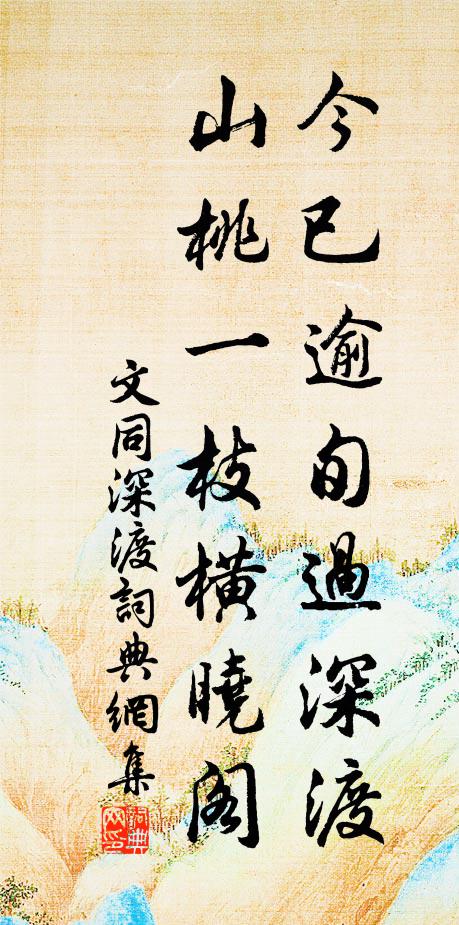 今已逾旬過深渡
山桃一枝橫曉閣
文同深渡詞典網集
詞典
网印